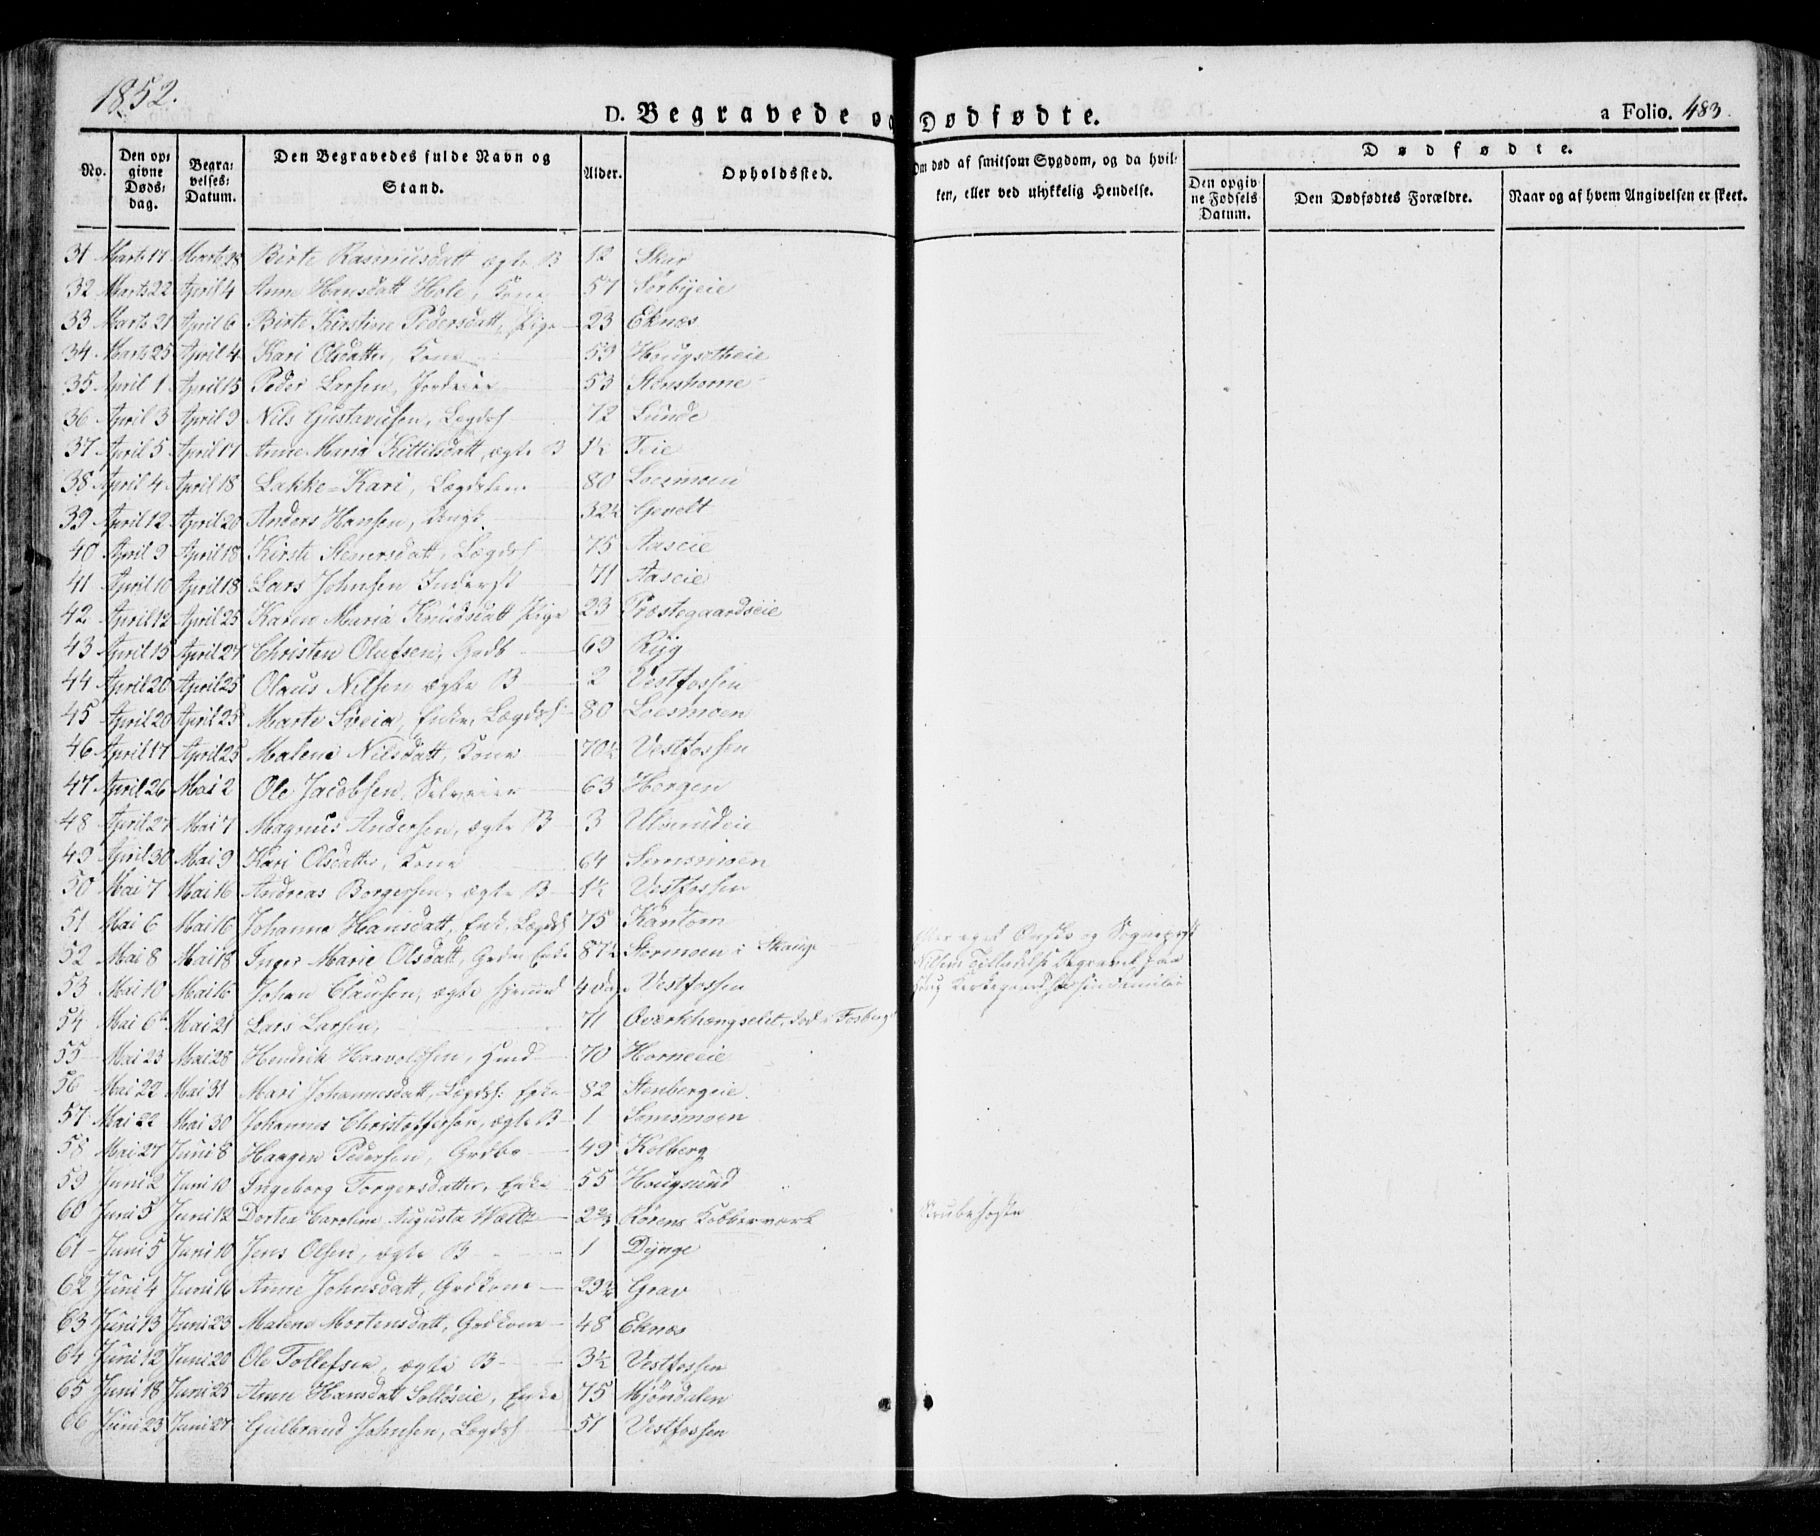 1852.
D. Begravede og Dødfødte.
a Folio. 483.
No. Den opgivne Dødsdag. Begravelses-Datum. Den Begravedes fulde Navn og Stand. Alder. Opholdssted. Om død af smitsom Sygdom, og da hvilken, eller ved ulykkelig Hendelse. Dødfødte.
Den opgivne Fødsels Datum. Den Dødfødtes Forældre. Naar og af hvem Angivelsen er skeet.
31 Marts 17 Marts 28 Birte Rasmusdatt ægte B 12 Skar
32 Marts 22 April 4 Anne Hansdatt Hole, Kone 57 Sørbyeie
33 Marts 21 April 6 Birte Kirstine Pedersdatt, Pige 23 Eknæs
34 Marts 25 April 4 Kari Olsdatter, Kone 59 Hougsetheie
35 April 1 April 15 Peder Larsen, 53 Stenshorne
36 April 3 April 9 Nils Gustavusen, Lægdsl 72 Lunde
37 April 5 April 17 Anne Maria Kittilsdatt, ægte B 1½ Teie
38 April 4 April 18 Lakke-Kari, Lægdslem 80 Loesmoen
39 April 12 April 20 Anders Hansen, Ungk. 32½ Gevelt
40 April 9 April 18 Kirste Stenersdatt, Lægdsl 75 Aaseie
41 April 10 April 18 Lars Johnsen Inderst 71 Aaseie
42 April 12 April 25 Karen Maria Knudsdatt Pige 23 Præstegaardseie
43 April 15 April 27 Christen Olufsen, Gadb 69 Ryg
44 April 20 April 25 Olaus Nilsen ægte B 2 Vestfossen
45 April 20 April 25 Marte Sveia, Enke, Lægdsl 80 Loesmoen
46 April 17 April 25 Malene Nilsdatt, Kone 70½ Vestfossen
47 April 26 Mai 2 Ole Jacobsen, Selveier 63 Horgen
48 April 27 Mai 7 Magnus Andersen, ægte B 3 Ulverudeie
49 April 30 Mai 9 Kari Olsdatter, Kone 64 Semsmoen
50 Mai 7 Mai 16 Andreas Borgersen, ægte B 1½ Vestfossen
51 Mai 6 Mai 16 Johanne Hansdatt, Enke, Lægdsl 75 Kantom
52 Mai 8 Mai 18 Inger Marie Olsdatt, Enke 87½ Stormoen i Skauge
eget Ønske og Sognepræst
Nilsens Tilladelse begravet paa
Haug Kirkegaard hos sin Familie
53 Mai 10 Mai 16 Johan Clausen, ægte 4 dag Vestfossen
54 Mai 6 Mai 21 Lars Larsen, 71 død i Fosberg
55 Mai 23 Mai 28 Hendrik Harvoldsen, Husm 70 Horneeie
56 Mai 22 Mai 31 Mari Johannesdatt, Lægdsl: Enke 82 Stenbergeie.
57 Mai 22 Mai 30 Johannes Christoffersen, ægte B 1 Semsmoen
58 Mai 27 Juni 8 Haagen Pedersen, Grdbr 49 Kolberg
59 Juni 2 Juni 10 Ingeborg Torgersdatter, Enke 55 Hougsund
60 Juni 5 Juni 12 Dortea Caroline Augusta Waltz 2⅔ Røraas Kobberværk Strubehoste
61 Juni 5 Juni 10 Jens Olsen, ægte B 1 Dynge
62 Juni 4 Juni 16 Anne Johnsdatt, Grdkone 29½ Grav
63 Juni 13 Juni 23 Malene Mortensdatt, Grdkone 48 Eknæs
64 Juni 12 Juni 20 Ole Tollefsen, ægte B 3½ Vestfossen
65 Juni 18 Juni 25 Anne Hansdatt Solløseie, Enke 75 Mjøndalen
66 Juni 23 Juni 27 Gulbrand Johnsen, Lægdsl 51 Vestfossen